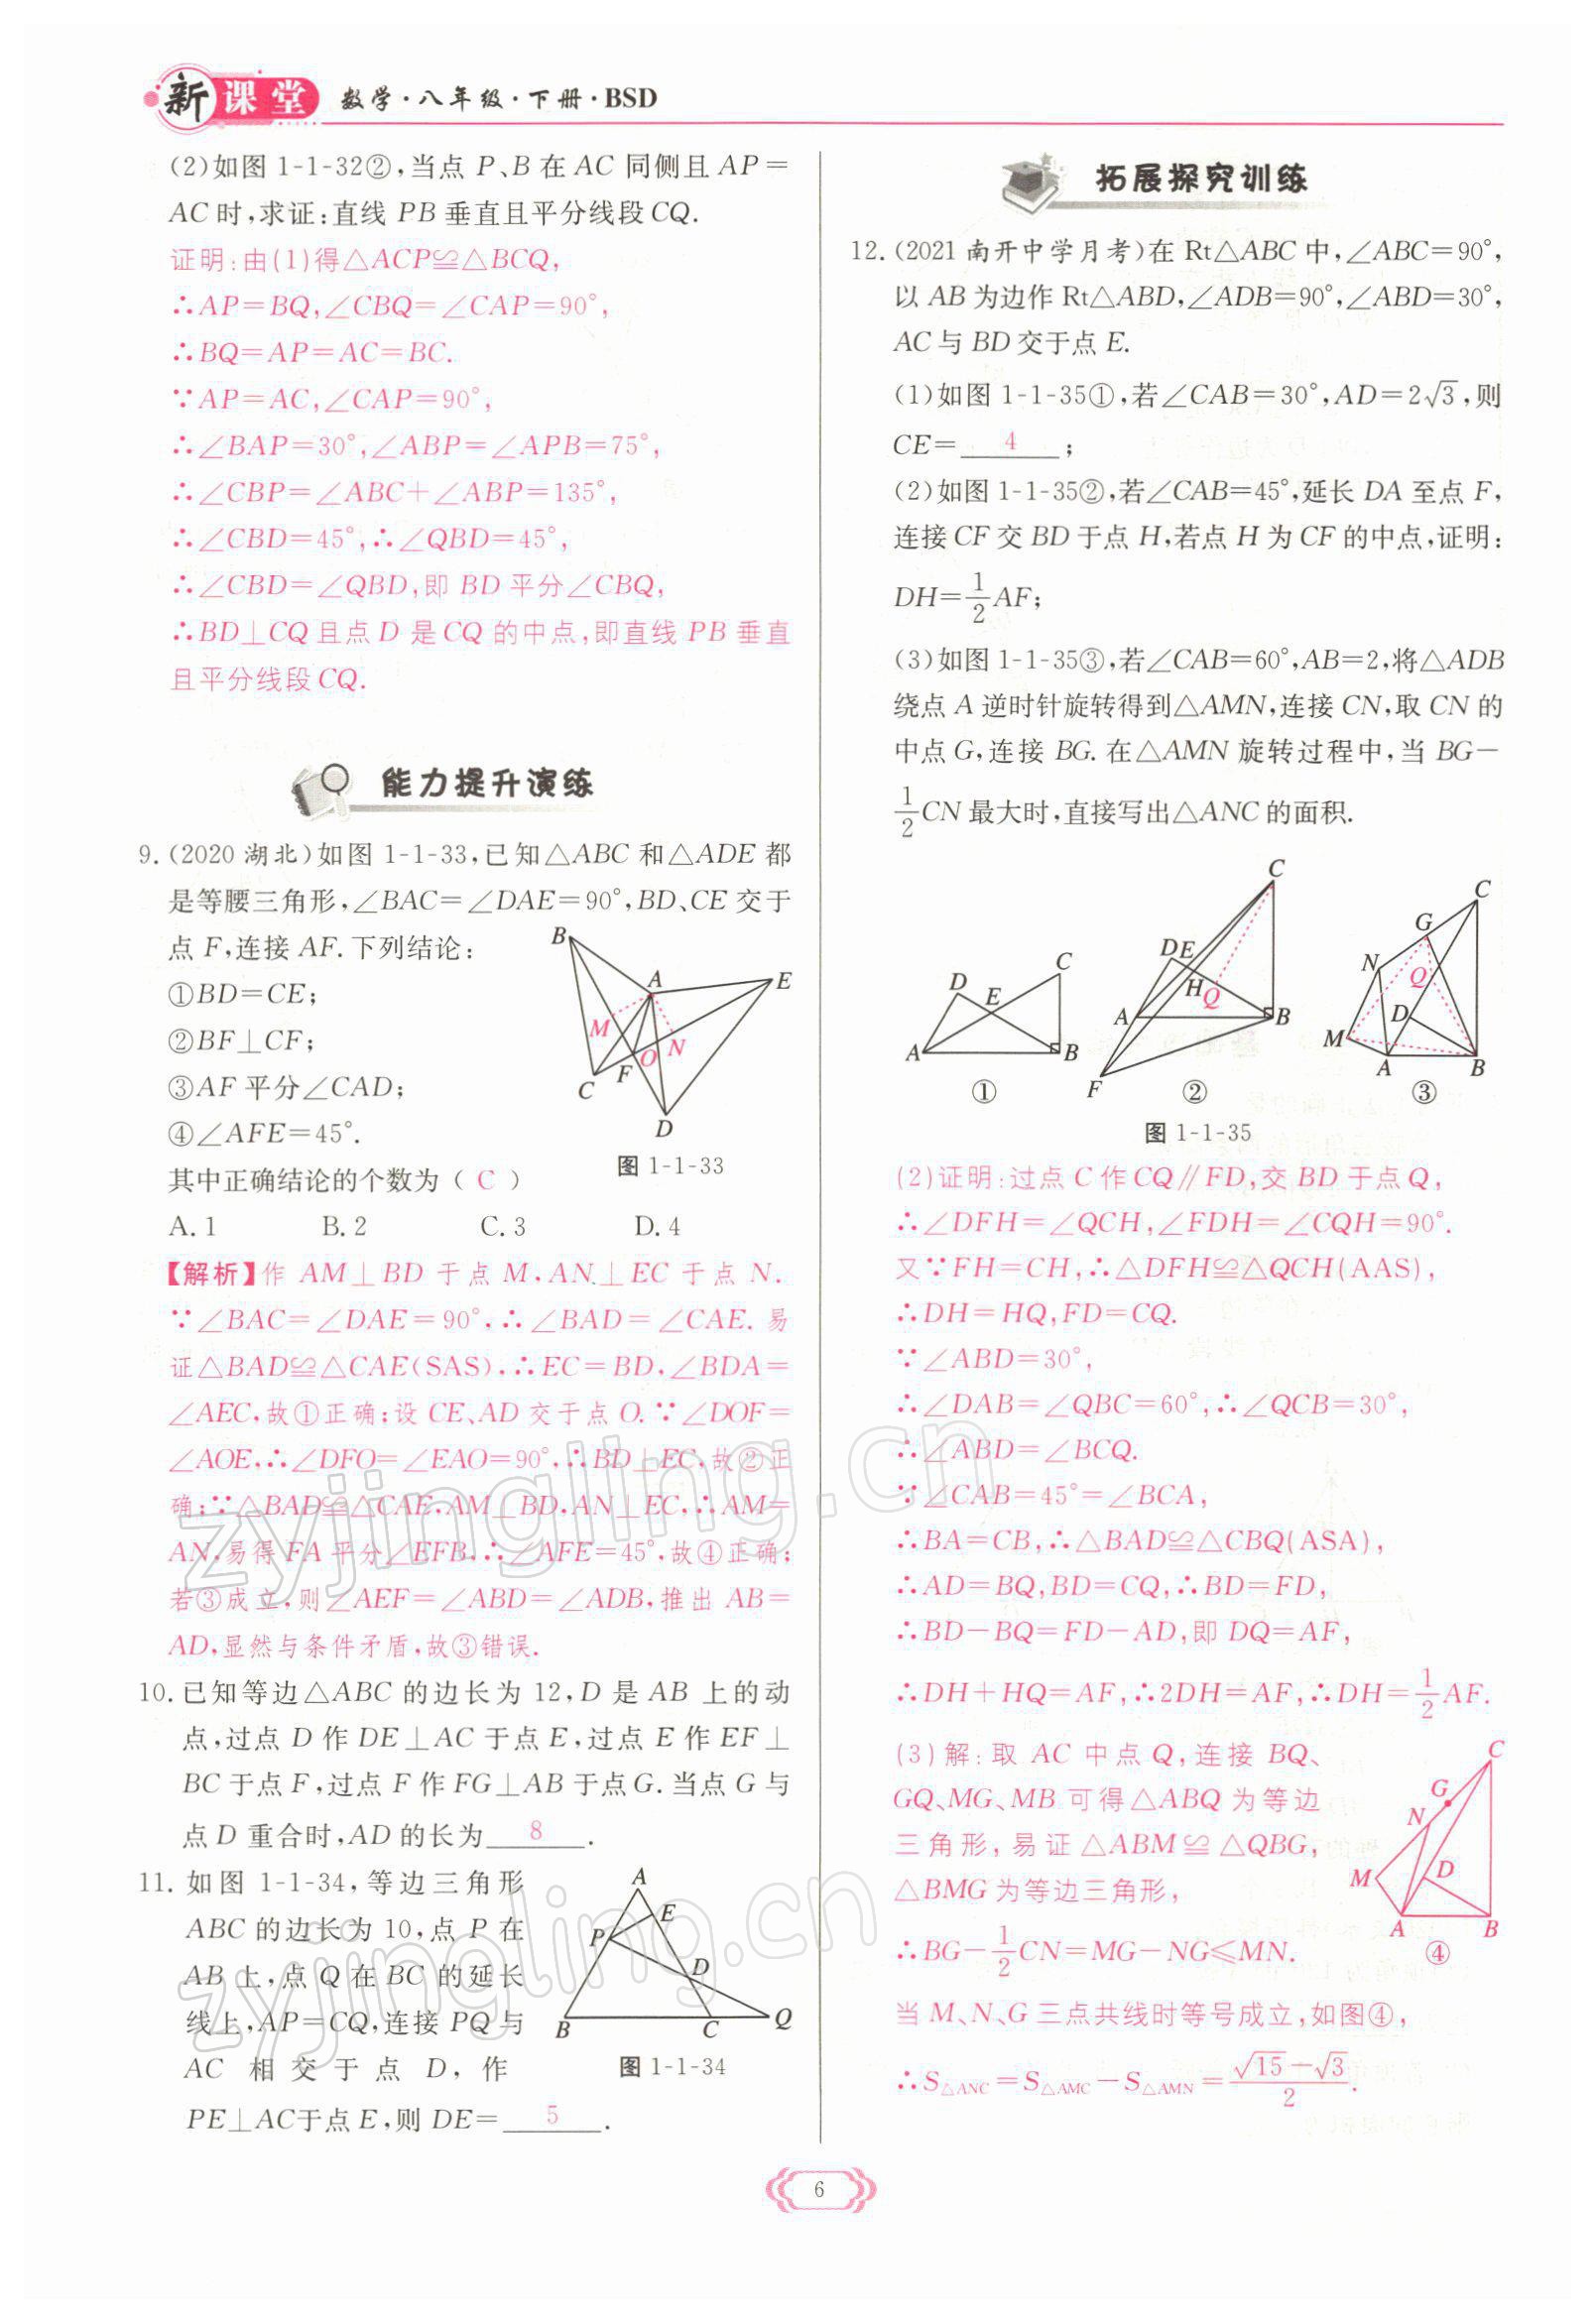 新课堂 数学·八年级·下册·BSD
(2)如图1-1-32②,当点P、B在AC同侧且AP=
AC时,求证:直线PB垂直且平分线段CQ.
证明:由(1)得△ACP≌△BCQ,
∴AP=BQ,∠CBQ=∠CAP=90°,
∴BQ=AP=AC=BC.
∵AP=AC,∠CAP=90°,
∴∠BAP=30°,∠ABP=∠APB=75°,
∴∠CBP=∠ABC+∠ABP=135°,
∴∠CBD=45°,∴∠QBD=45°,
∴∠CBD=∠QBD,即BD平分∠CBQ,
∴BD⊥CQ且点D是CQ的中点,即直线PB垂直
且平分线段CQ.
能力提升演练
9.(2020湖北)如图1-1-33,已知△ABC和△ADE都
是等腰三角形,∠BAC=∠DAE=90°,BD、CE交于
点F,连接AF.下列结论:
①BD=CE;
②BF⊥CF;
③AF平分∠CAD;
④∠AFE=45°.
其中正确结论的个数为( C )
A.1 B.2 C.3 D.4
B
A
E
M
O
N
C
F
D
图1-1-33
【解析】作AM⊥BD于点M,AN⊥EC于点N.
∵∠BAC=∠DAE=90°,∴∠BAD=∠CAE.易
证△BAD≌△CAE(SAS),∴EC=BD,∠BDA=
∠AEC,故①正确;设CE、AD交于点O.∵∠DOF=
∠AOE,∴∠DFO=∠EAO=90°,∴BD⊥EC,故②正
确;∵△BAD≌△CAE,AM⊥BD,AN⊥EC,∴AM=
AN,易得FA平分∠EFB,∴∠AFE=45°,故④正确;
若③成立,则∠AEF=∠ABD=∠ADB,推出AB=
AD,显然与条件矛盾,故③错误.
10.已知等边△ABC的边长为12,D是AB上的动
点,过点D作DE⊥AC于点E,过点E作EF⊥
BC于点F,过点F作FG⊥AB于点G.当点G与
点D重合时,AD的长为 8 .
11.如图1-1-34,等边三角形
ABC的边长为10,点P在
AB上,点Q在BC的延长
线上,AP=CQ,连接PQ与
AC相交于点D,作
PE⊥AC于点E,则DE= 5 .
A
E
P
D
B
C
Q
图1-1-34
拓展探究训练
12.(2021南开中学月考)在Rt△ABC中,∠ABC=90°,
以AB为边作Rt△ABD,∠ADB=90°,∠ABD=30°,
AC与BD交于点E.
(1)如图1-1-35①,若∠CAB=30°,AD=2√3,则
CE= 4 ;
(2)如图1-1-35②,若∠CAB=45°,延长DA至点F,
连接CF交BD于点H,若点H为CF的中点,证明:
DH=1/2AF;
(3)如图1-1-35③,若∠CAB=60°,AB=2,将△ADB
绕点A逆时针旋转得到△AMN,连接CN,取CN的
中点G,连接BG.在△AMN旋转过程中,当BG-
1/2CN最大时,直接写出△ANC的面积.
D
E
C
A
B
①
C
D
E
H
Q
A
B
F
②
C
G
N
Q
D
M
A
B
③
图1-1-35
(2)证明:过点C作CQ∥FD,交BD于点Q,
∴∠DFH=∠QCH,∠FDH=∠CQH=90°.
又∵FH=CH,∴△DFH≌△QCH(AAS),
∴DH=HQ,FD=CQ.
∵∠ABD=30°,
∴∠DAB=∠QBC=60°,∴∠QCB=30°,
∴∠ABD=∠BCQ.
∵∠CAB=45°=∠BCA,
∴BA=CB,∴△BAD≌△CBQ(ASA),
∴AD=BQ,BD=CQ,∴BD=FD,
∴BD-BQ=FD-AD,即DQ=AF,
∴DH+HQ=AF,∴2DH=AF,∴DH=1/2AF.
(3)解:取AC中点Q,连接BQ、
GQ、MG、MB可得△ABQ为等边
三角形,易证△ABM≌△QBG,
△BMG为等边三角形,
∴BG-1/2CN=MG-NG≤MN.
当M、N、G三点共线时等号成立,如图④,
∴S△ANC=S△AMC-S△AMN=(√15-√3)/2.
C
G
N
M
D
A
B
④
6
zyjingling.cn
zyjingling.cn